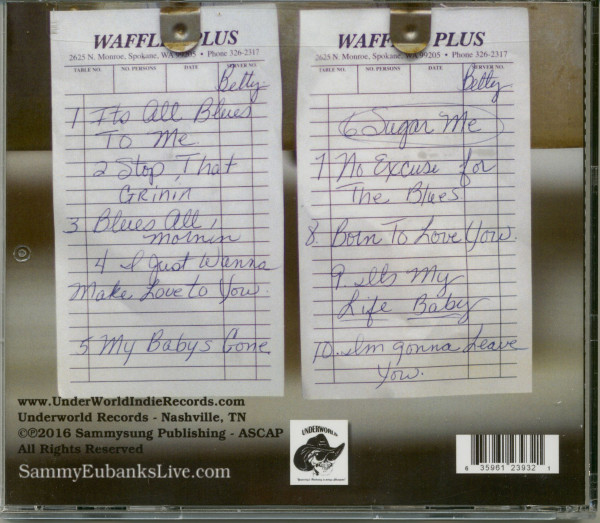 WAFFLES PLUS
2625 N. Monroe, Spokane, WA 99205 • Phone 326-2317
TABLE NO. NO. PERSONS DATE SERVER NO.
Betty
1 Its All Blues
To Me
2 Stop That
Grinin
3 Blues All,
mornin
4 I Just Wanna
Make Love to You.
5 My Babys Gone
WAFFLES PLUS
2625 N. Monroe, Spokane, WA 99205 • Phone 326-2317
TABLE NO. NO. PERSONS DATE SERVER NO.
Betty
6 Sugar Me
7 No Excuse for
The Blues
8. Born To Love You.
9. Its My
Life Baby
10. Im gonna Leave
You.
www.UnderWorldIndieRecords.com
Underworld Records - Nashville, TN
©℗2016 Sammysung Publishing - ASCAP
All Rights Reserved
SammyEubanksLive.com
UNDERWORLD
6 35961 23932 1